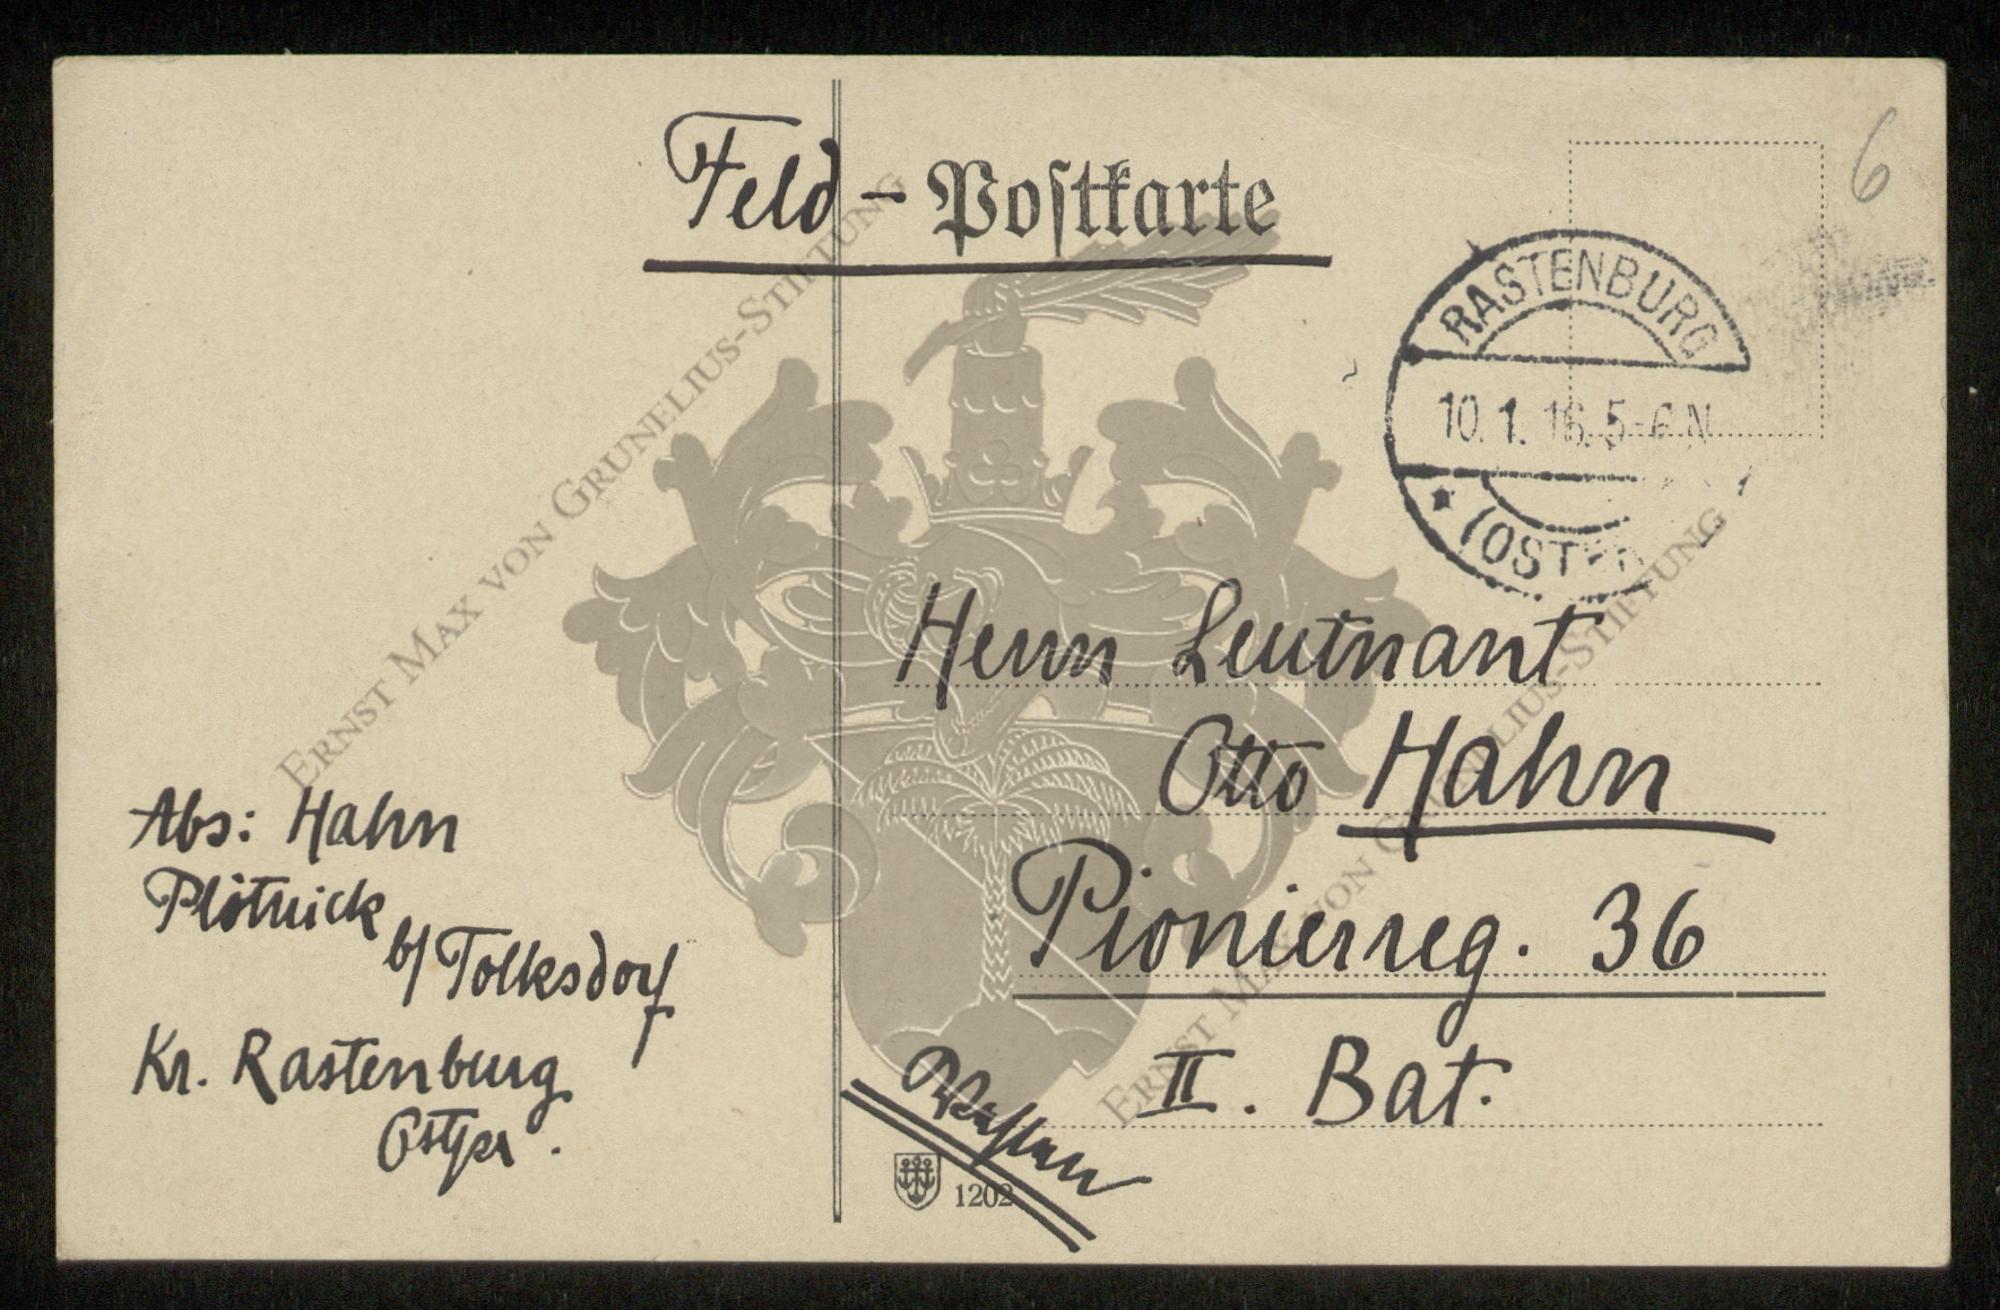 Feld - Postkarte
6
RASTENBURG
10.1.16.5-6N
(OSTPR
Herrn Leutnant
Otto Hahn
Pionierreg. 36
II. Bat.
Abs: Hahn
Plötnick
b/Tolksdorf
Kr. Rastenburg
Ostpr.
1202
ERNST MAX VON GRUNELIUS-STIFTUNG
ERNST MAX VON GRUNELIUS-STIFTUNG